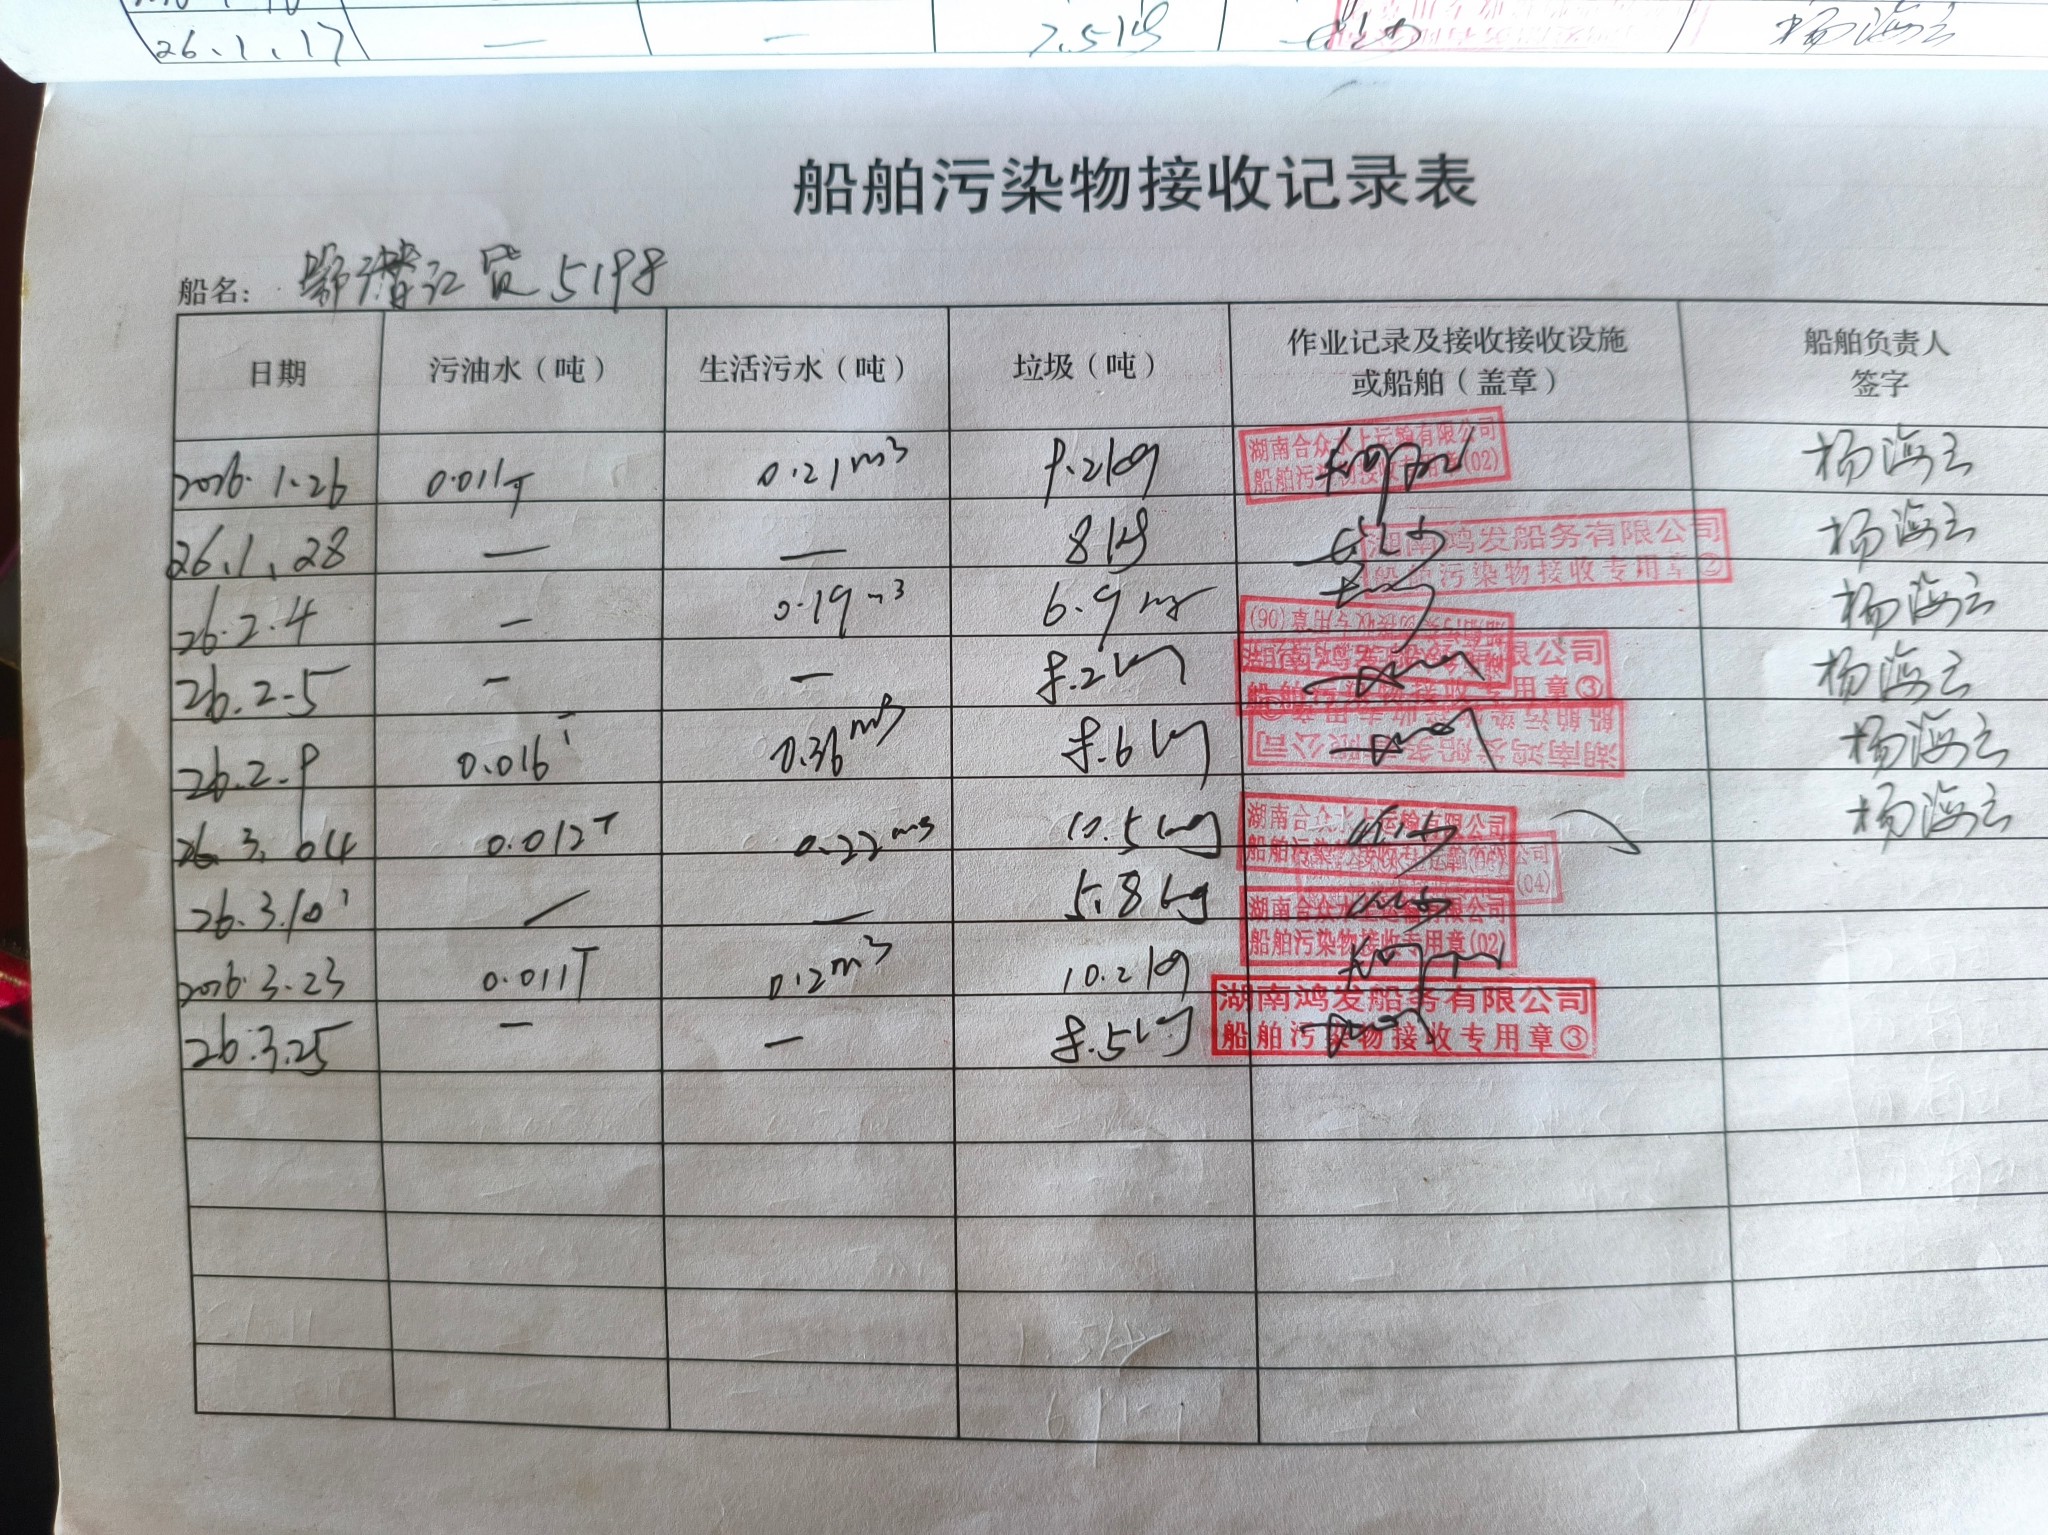 26.1.17 — — 7.5kg 杨海云
船舶污染物接收记录表
船名: 鄂潜江货5198
日期 污油水（吨） 生活污水（吨） 垃圾（吨） 作业记录及接收接收设施或船舶（盖章） 船舶负责人签字
2026.1.26 0.011T 0.21m³ 9.2kg 湖南合众水上运输有限公司 船舶污染物接收专用章(02) 杨海云
26.1.28 — — 8kg 湖南鸿发船务有限公司 船舶污染物接收专用章② 杨海云
26.2.4 — 0.19m³ 6.9kg 船舶污染物接收专用章(06) 杨海云
26.2.5 — — 8.2kg 湖南鸿发船务有限公司 船舶污染物接收专用章③ 杨海云
26.2.9 0.016T 0.36m³ 8.6kg 湖南鸿发船务有限公司 杨海云
26.3.04 0.012T 0.22m³ 10.5kg 湖南合众水上运输有限公司 杨海云
26.3.10 / — 5.8kg 湖南合众水上运输有限公司 船舶污染物接收专用章(02)
2026.3.23 0.011T 0.2m³ 10.2kg
26.3.25 — — 8.5kg 湖南鸿发船务有限公司 船舶污染物接收专用章③